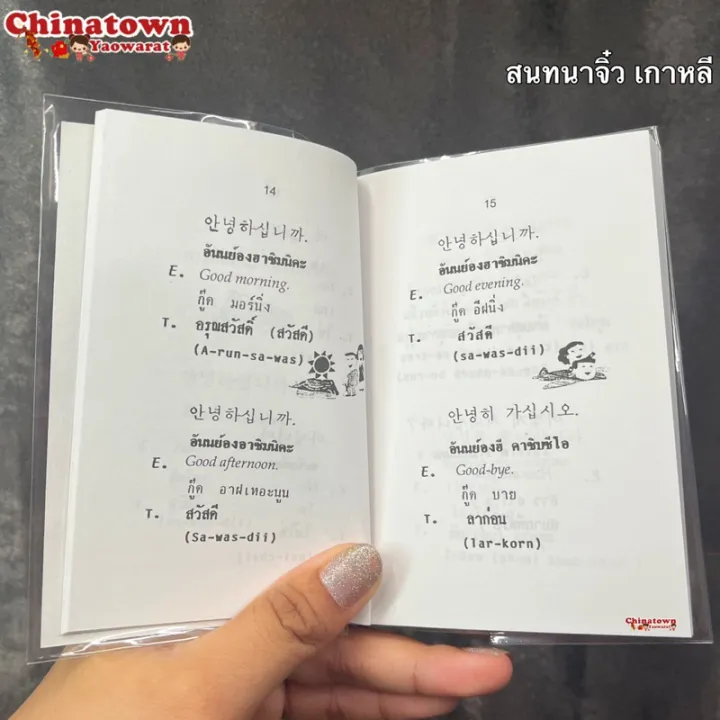 Chinatown
Yaowarat
สนทนาจิ๋ว เกาหลี
14
안녕하십니까.
อันนย์องฮาซิมนิคะ
E. Good morning.
กู๊ด มอร์นิ่ง
T. อรุณสวัสดิ์ (สวัสดี)
(A-run-sa-was)
안녕하십니까.
อันนย์องอาซิมนิคะ
E. Good afternoon.
กู๊ด อาฝเทอะนูน
T. สวัสดี
(Sa-was-dii)
15
안녕하십니까.
อันนย์องฮาซิมนิคะ
E. Good evening.
กู๊ด อีฝนิ่ง
T. สวัสดี
(sa-was-dii)
안녕히 가십시오.
อันนย์องฮี คาซิบซีโอ
E. Good-bye.
กู๊ด บาย
T. ลาก่อน
(lar-korn)
Chinatown
Yaowarat